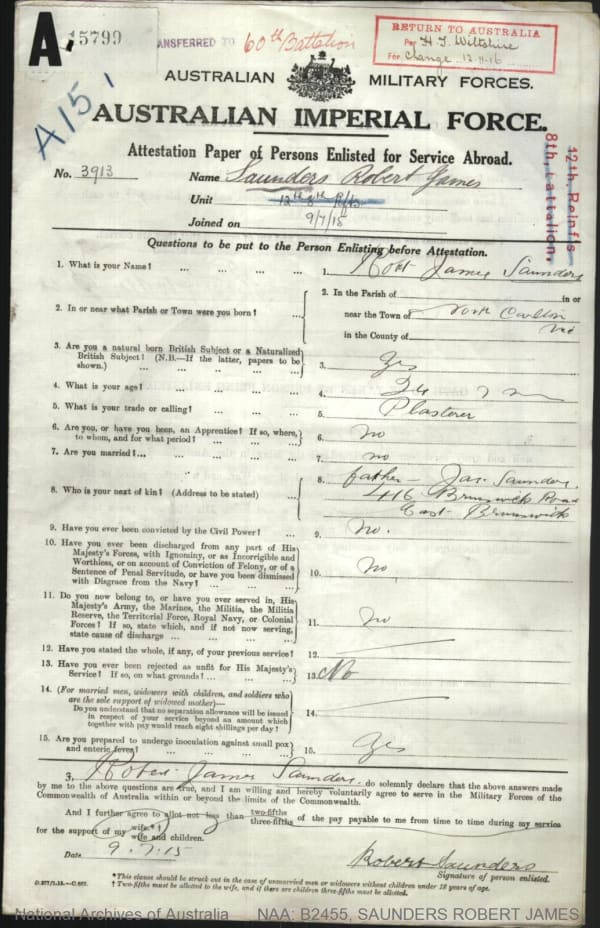 A. 15799
TRANSFERRED TO 60th Battalion
RETURN TO AUSTRALIA
Per H. T. Wiltshire
For change 12.11.16
A15
AUSTRALIAN MILITARY FORCES.
AUSTRALIAN IMPERIAL FORCE.
Attestation Paper of Persons Enlisted for Service Abroad.
12th Reinf's
8th Battalion.
No. 3913 Name Saunders Robert James
Unit 12th 8th Rfts
Joined on 9/7/15
Questions to be put to the Person Enlisting before Attestation.
1. What is your Name? ... ... ... ... 1. Robt James Saunders
2. In or near what Parish or Town were you born? ... 2. In the Parish of in or
near the Town of North Carlton
in the County of Vic
3. Are you a natural born British Subject or a Naturalized
British Subject? (N.B.—If the latter, papers to be
shown.) ... ... ... ... 3. Yes
4. What is your age? ... ... ... ... 4.
5. What is your trade or calling? ... ... ... 5. Plasterer
6. Are you, or have you been, an Apprentice? If so, where,
to whom, and for what period? ... ... ... 6. no
7. Are you married?... ... ... ... ... 7. no
8. Who is your next of kin? (Address to be stated) ... 8. father - Jas. Saunders.
416 Brunswick Road
East Brunswick
9. Have you ever been convicted by the Civil Power? ... 9. no.
10. Have you ever been discharged from any part of His
Majesty's Forces, with Ignominy, or as Incorrigible and
Worthless, or on account of Conviction of Felony, or of a
Sentence of Penal Servitude, or have you been dismissed
with Disgrace from the Navy? ... ... ... 10. no
11. Do you now belong to, or have you ever served in, His
Majesty's Army, the Marines, the Militia, the Militia
Reserve, the Territorial Force, Royal Navy, or Colonial
Forces? If so, state which, and if not now serving,
state cause of discharge ... ... ... ... 11. no
12. Have you stated the whole, if any, of your previous service? 12.
13. Have you ever been rejected as unfit for His Majesty's
Service? If so, on what grounds? ... ... ... 13. No
14. (For married men, widowers with children, and soldiers who
are the sole support of widowed mother)—
Do you understand that no separation allowance will be issued
in respect of your service beyond an amount which
together with pay would reach eight shillings per day? 14.
15. Are you prepared to undergo inoculation against small pox
and enteric fever? ... ... ... ... 15. Yes
I, Robert James Saunders. do solemnly declare that the above answers made
by me to the above questions are true, and I am willing and hereby voluntarily agree to serve in the Military Forces of the
Commonwealth of Australia within or beyond the limits of the Commonwealth.
And I further agree to allot not less than two-fifths three-fifths of the pay payable to me from time to time during my service
for the support of my wife.*† wife and children.
Date 9.7.15
Robert Saunders
Signature of person enlisted.
*This clause should be struck out in the case of unmarried men or widowers without children under 18 years of age.
† Two-fifths must be allotted to the wife, and if there are children three-fifths must be allotted.
National Archives of Australia NAA: B2455, SAUNDERS ROBERT JAMES